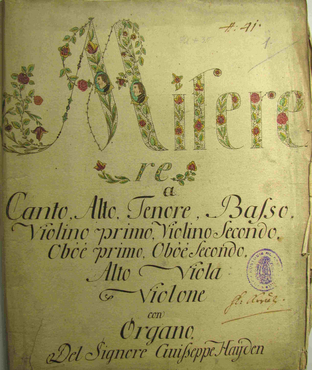 Misere
re
a
Canto, Alto, Tenore, Basso,
Violino primo, Violino Secondo,
Oboè primo, Oboè Secondo,
Alto Viola
Violone
con
Organo.
Del Signore Guiseppe Hayden